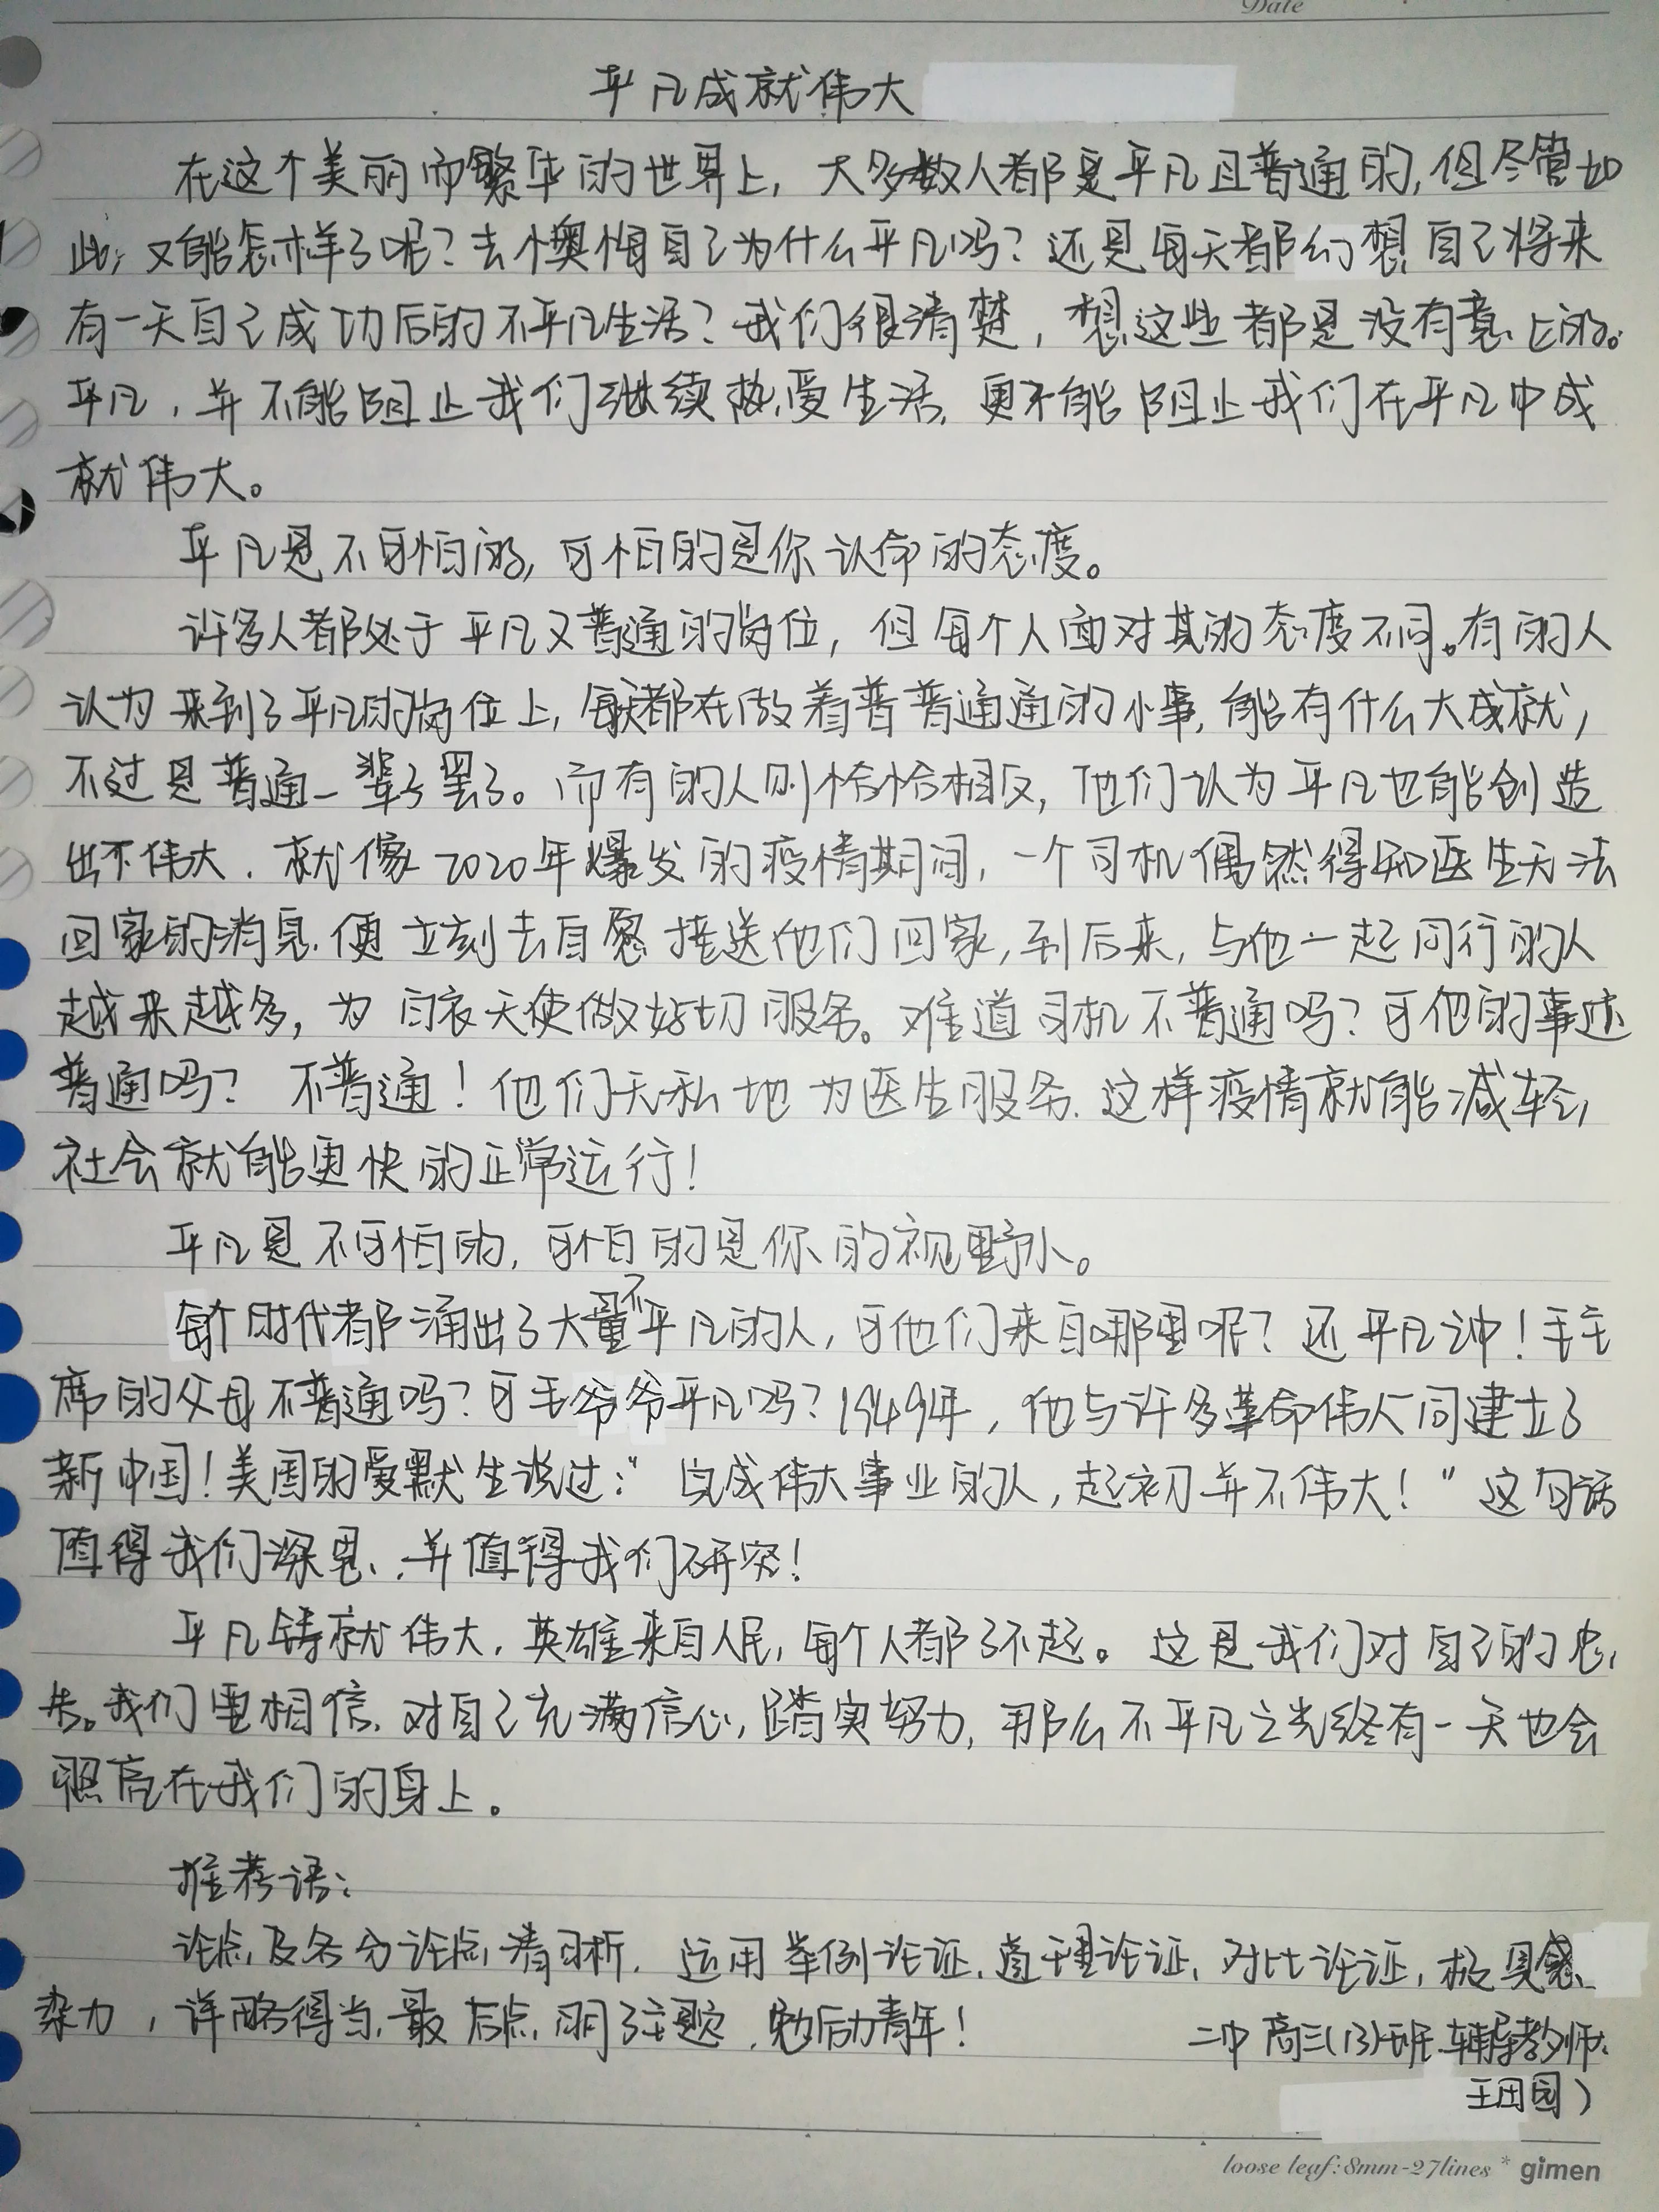 Date
平凡成就伟大
在这个美丽而繁华的世界上，大多数人都是平凡且普通的，但尽管如
此，又能怎样了呢？去懊悔自己为什么平凡吗？还是每天都幻想自己将来
有一天自己成功后的不平凡生活？我们很清楚，想这些都是没有意上的。
平凡，并不能阻止我们继续热爱生活，更不能阻止我们在平凡中成
就伟大。
平凡是不可怕的，可怕的是你认命的态度。
许多人都处于平凡又普通的岗位，但每个人面对其的态度不同。有的人
认为来到了平凡的岗位上，每天都在做着普普通通的小事，能有什么大成就，
不过是普通一辈子罢了。而有的人则恰恰相反，他们认为平凡也能创造
出不伟大．就像2020年爆发的疫情期间，一个司机偶然得知医生无法
回家的消息．便立刻去自愿接送他们回家，到后来，与他一起同行的人
越来越多，为白衣天使做好切服务。难道司机不普通吗？可他的事迹
普通吗？不普通！他们无私地为医生服务．这样疫情就能减轻，
社会就能更快的正常运行！
平凡是不可怕的，可怕的是你的视野小。
每个时代都涌出了大量不平凡的人，可他们来自哪里呢？还平凡冲！毛主
席的父母不普通吗？可毛爷爷平凡吗？1949年，他与许多革命伟人同建立了
新中国！美国的爱默生说过：“完成伟大事业的人，起初并不伟大！”这句话
值得我们深思，并值得我们研究！
平凡铸就伟大，英雄来自人民，每个人都了不起。这是我们对自己的
告。我们要相信．对自己充满信心，踏实努力，那么不平凡之光终有一天也会
照亮在我们的身上。
推荐语：
论点及各分论点清晰．运用举例论证、道理论证、对比论证，极具感
染力，详略得当，最后点明了主题，勉励青年！
二中高三(13)班 辅导教师：
王团园）
loose leaf:8mm-27lines * gimen